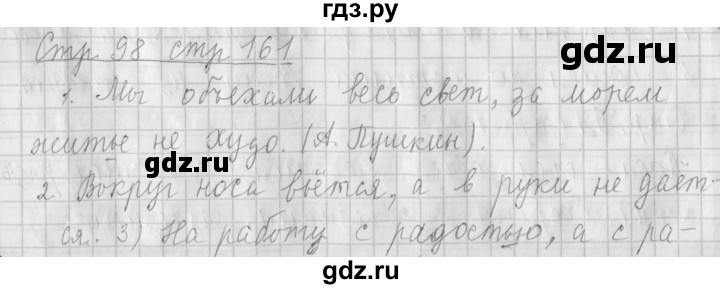 гдз.ру
Стр 98 стр 161
gdz.ru
1. Мы объехали весь свет, за морем
житье не худо. (А. Пушкин).
gdz.ru
2 Вокруг носа вьётся, а в руки не даёт-
ся. 3) На работу с радостью, а с ра-
gdz.ru
gdz.ru